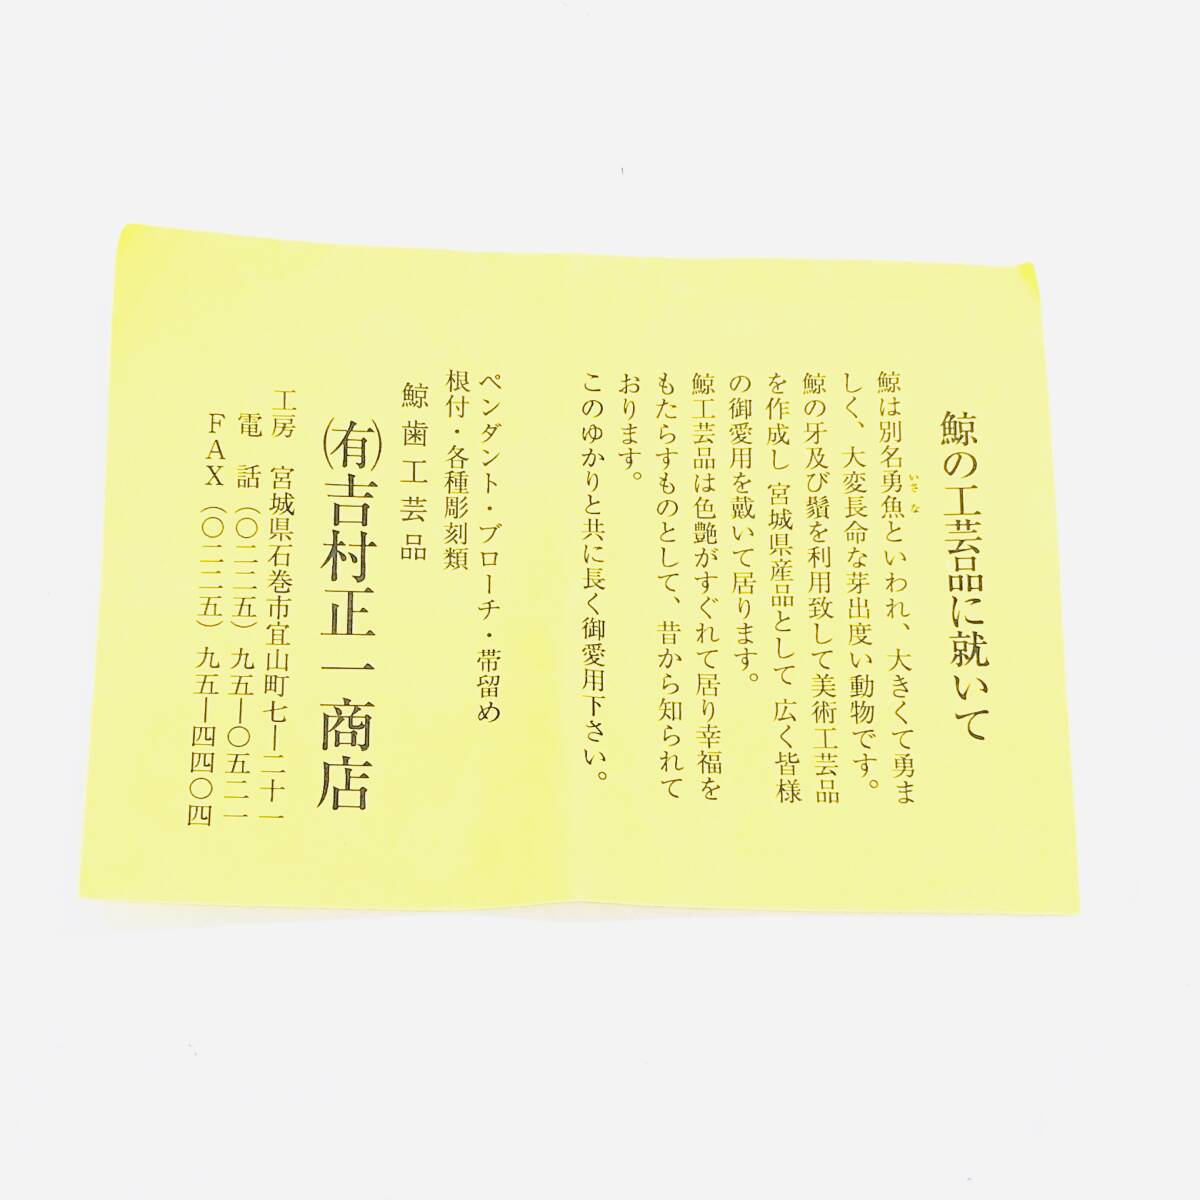 鯨の工芸品に就いて
鯨は別名勇魚といわれ、大きくて勇ま
いさな
しく、大変長命な芽出度い動物です。
鯨の牙及び鬚を利用致して美術工芸品
を作成し 宮城県産品として 広く皆様
の御愛用を戴いて居ります。
鯨工芸品は色艶がすぐれて居り幸福を
もたらすものとして、昔から知られて
おります。
このゆかりと共に長く御愛用下さい。
ペンダント・ブローチ・帯留め
根付・各種彫刻類
鯨歯工芸品
㈲吉村正一商店
工房 宮城県石巻市宜山町七ー二十一
電話（〇二二五）九五ー〇五二一
FAX（〇二二五）九五ー四四〇四